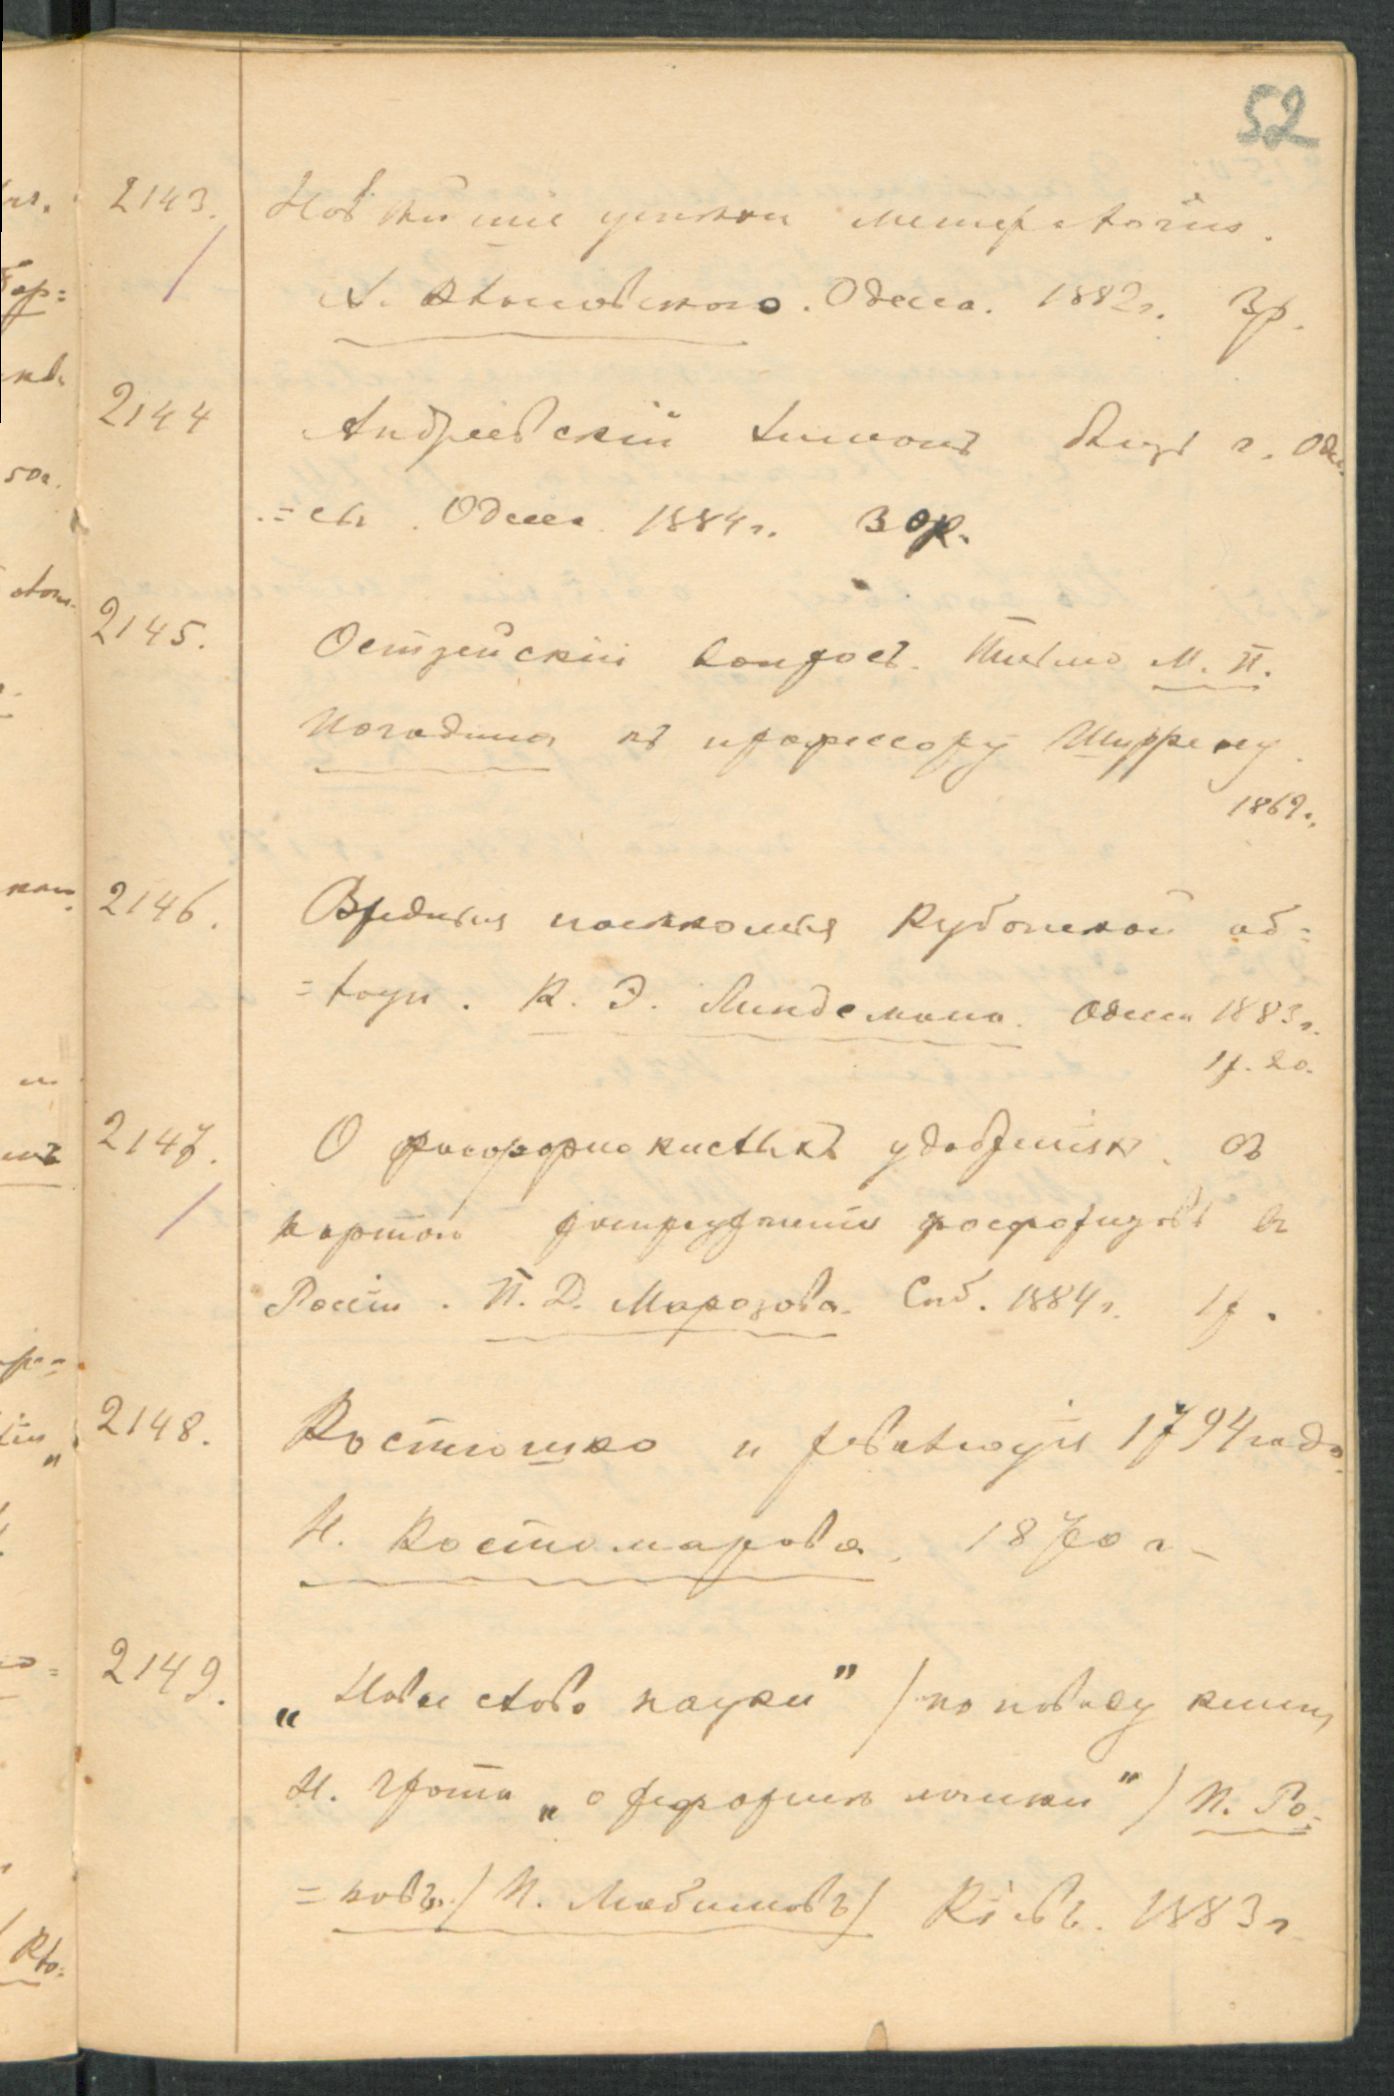 52
2143. Новѣйшіе успѣхи метеорологіи.
А. Клосовскаго. Одесса. 1882г. 3р.
2144 Андреевскій лиманъ близъ г. Одес
=сы. Одесса 1884г. 30к.
2145. Остзейскій вопросъ. Письмо М. П.
Погодина къ профессору Ширрену.
1869г.
2146. Вредныя насѣкомыя Кубанской об=
=ласти. К. Э. Линдемана. Одесса 1883г.
1р. 20.
2147. О фосфорнокислыхъ удобреніяхъ. съ
картою распредѣленія фосфоритовъ въ
Россіи. П. Д. Морозова. Спб. 1884г. 1р.
2148. Костюшко и революція 1794 года.
Н. Костомарова. 1870 г.
2149. „Новое слово науки" (по поводу книги
Н. Грота „о реформѣ логики") П. Ро=
=новъ. (П. Любимовъ) Кіевъ. 1883г